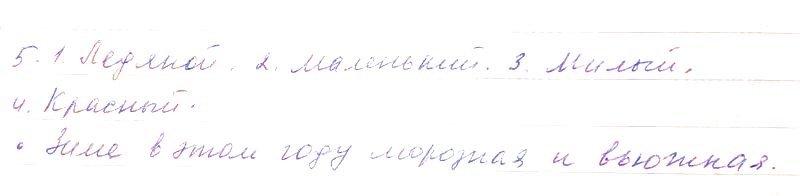 5. 1. Ледяной. 2. Маленький. 3. Милый.
4. Красный.
• Зима в этом году морозная и вьюжная.